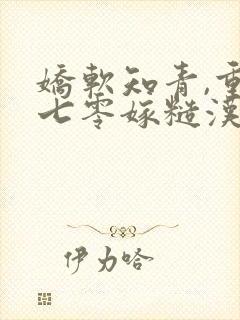 嬌軟知青,重
七零嫁糙漢
伊力哈